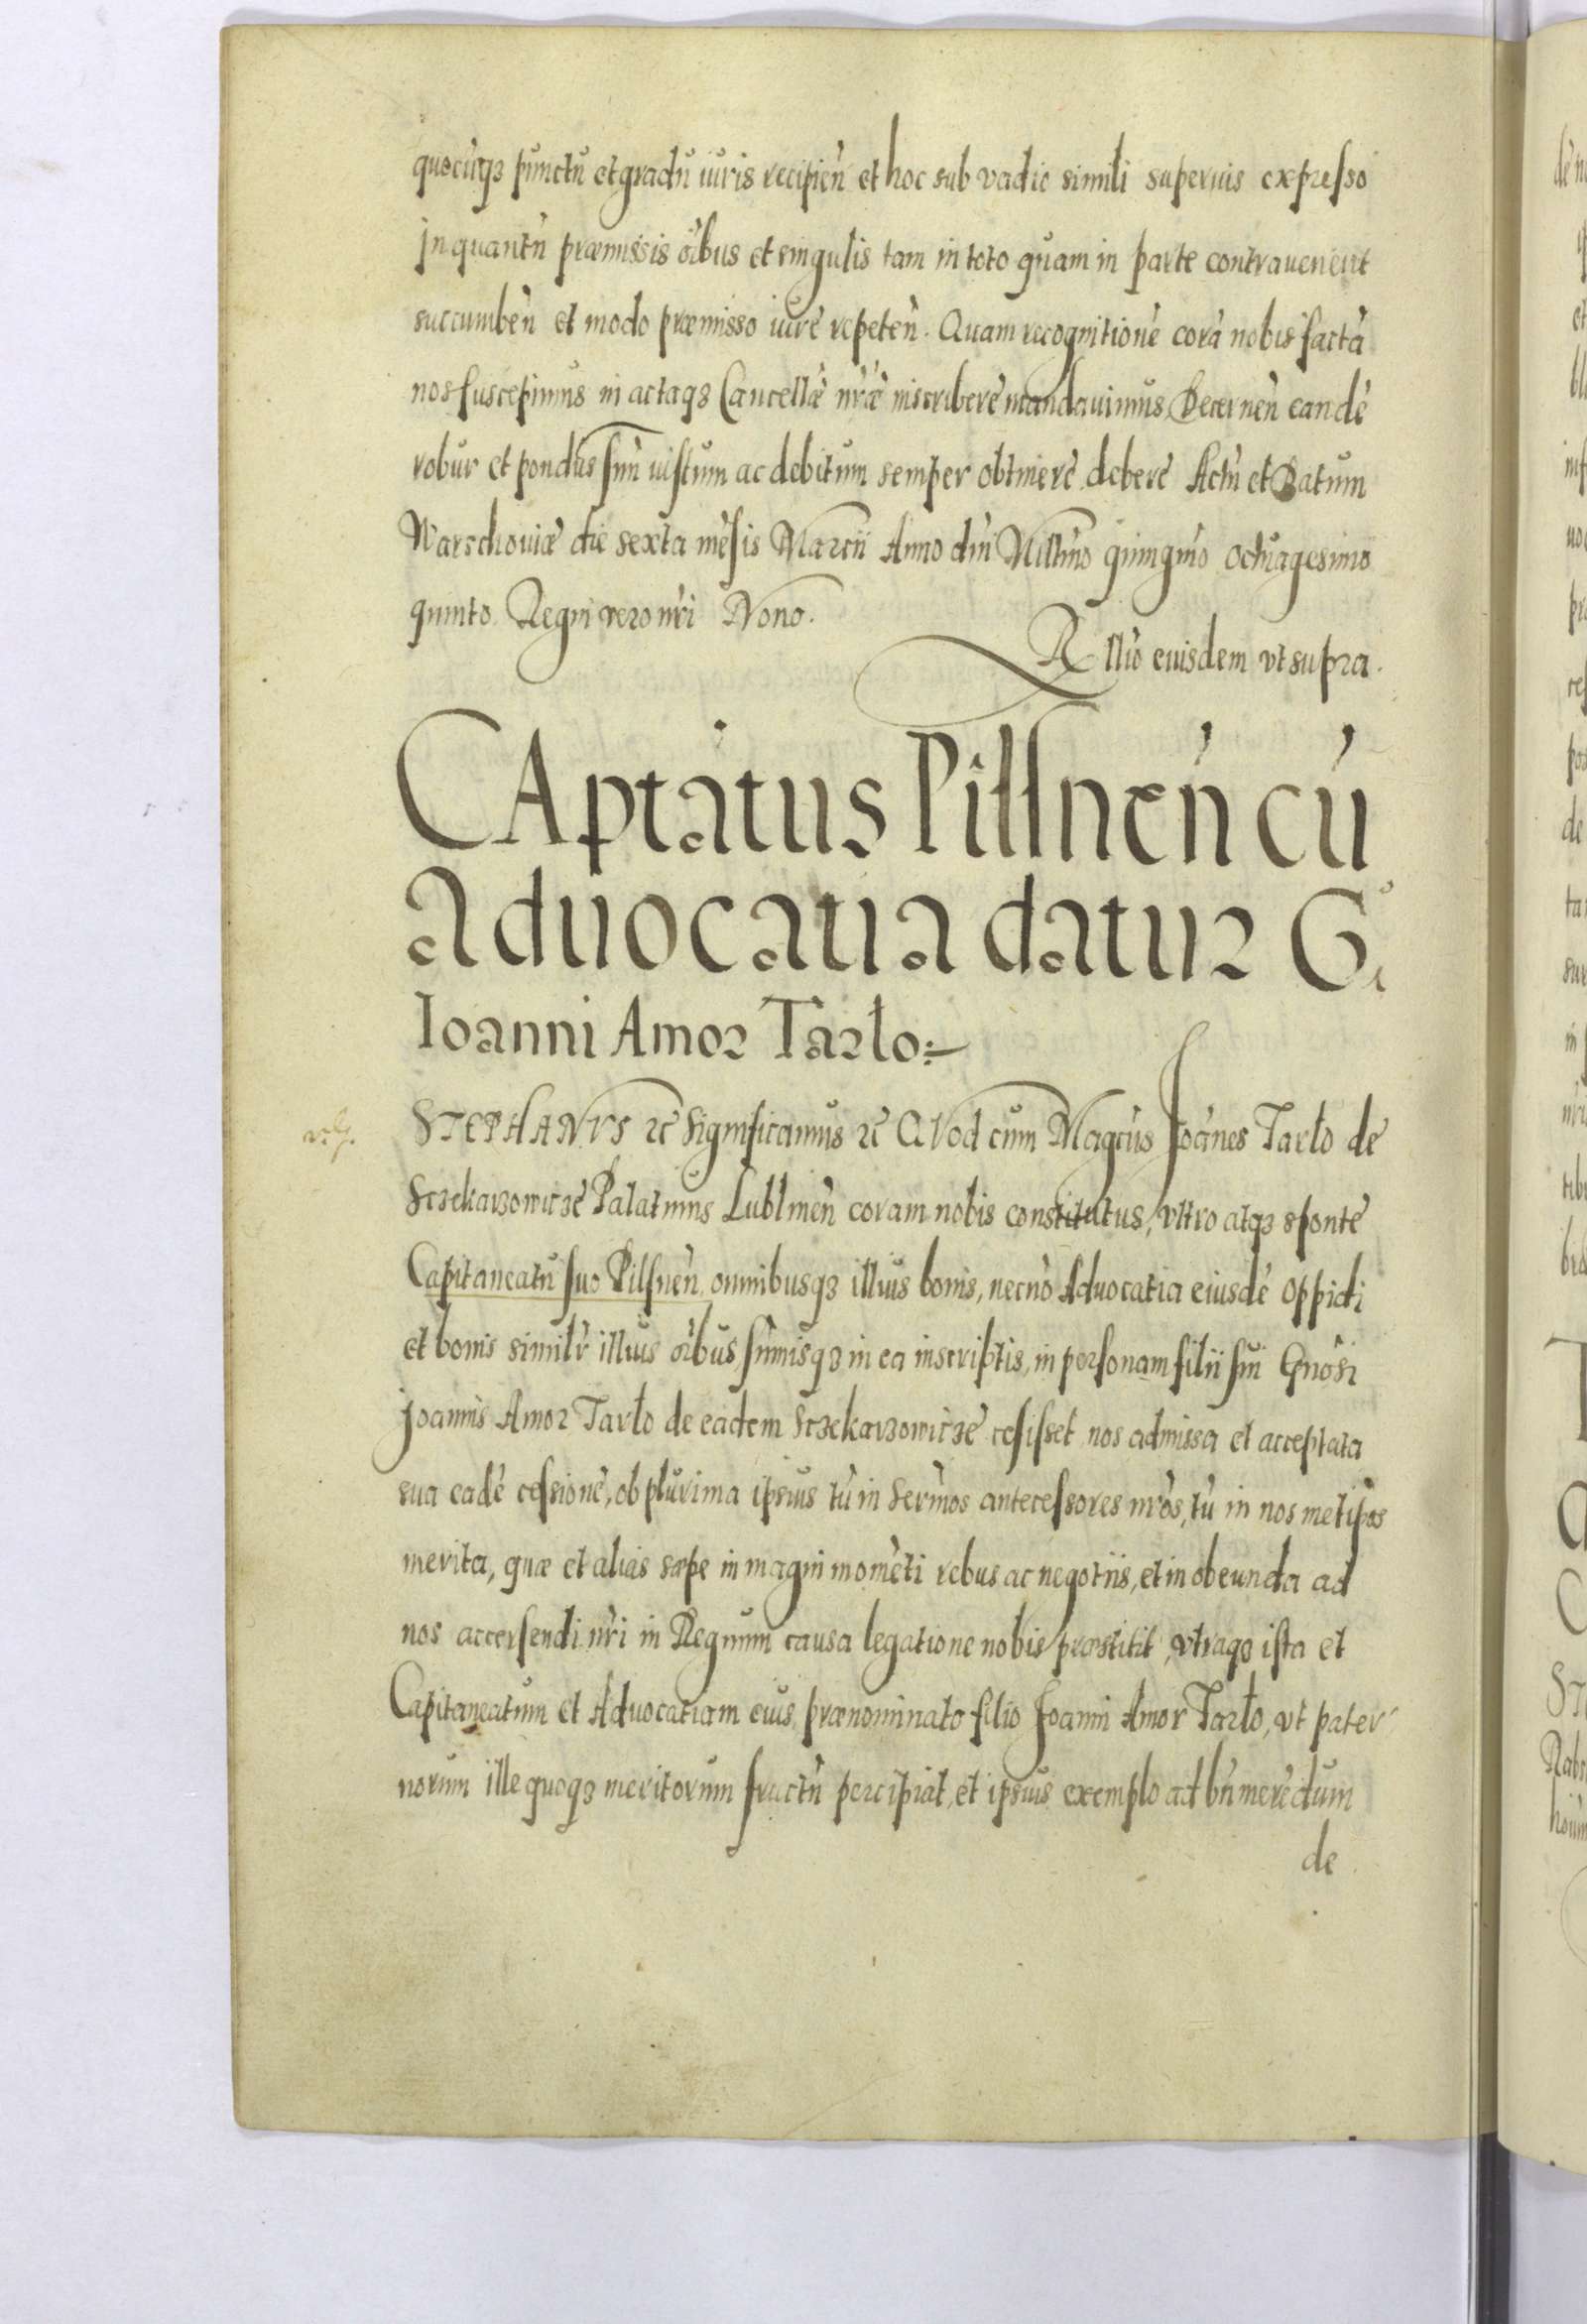 quocùqз punctù et gradù iuris recipieǹ et hoc sub vadio simili superius expresso
Inquantù præmissis oìbus et singulis tam in toto quam in parte contraueneńt
succumbeǹ et modo præmisso iurè repeteǹ. Quam recognitionè corà nobis factà
nos suscepimus in actaqз Cancellæ nr̃æ inscriberè mandauimus, Decerneǹ eandè
robur et pondus suù iustum ac debitum semper obtinerè deberè Actù et Datum
Warschouiæ die sexta mẽsis Marcii Anno dni Millm̃o quingm̃o octuagesimo
quinto Regni vero nr̃i Nono.
Rllio eiusdem vt supra.
CAptatus Pilsneń cu᷄
aduocatia datur G.
Ioanni Amor Tarło
STEPHANVS ꝛc̃ Significamus ꝛc̃ QVod cum Magcus Ioànes Tarło de
Sczekarzowiczè Palatinus Lublineǹ coram nobis constitutus, vltro atqз sponte
Capitaneatù suo Pilsneǹ, omnibusqз illius bonis, necnò Aduocatia eiusdè oppidi
et bonis simil̀r illius oìbus, sum̀isqз in ea inscriptis, in personam filii sui Gnòsi
Joannis Amor Tarło de eadem Sczekarzowiczè cesisset nos admissa et acceptata
sua eadè cessionè, ob plurima ipsius tù in Serm̀os antecessores nròs, tù in nos metipsos
merita, quæ et alias sæpe in magni momèti rebus ac negotiis, et in obeunda ad
nos accersendi nr̀i in Regnum causa legatione nobis præstitit, vtraqз ista et
Capitaneatum et Aduocatiam eius, prænominato filio Joanni Amor Tarło, vt pater
norum ille quoqз meritorum fructù percipiat, et ipsius exemplo ad bǹ merèdum
de